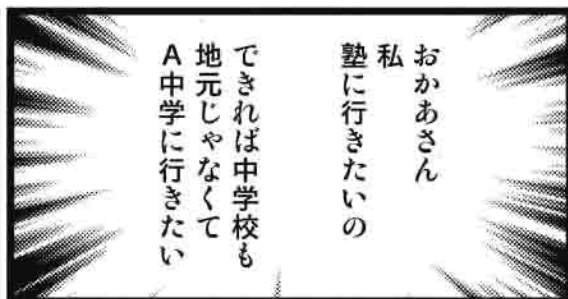 おかあさん
私
塾に行きたいの
できれば中学校も
地元じゃなくて
A中学に行きたい